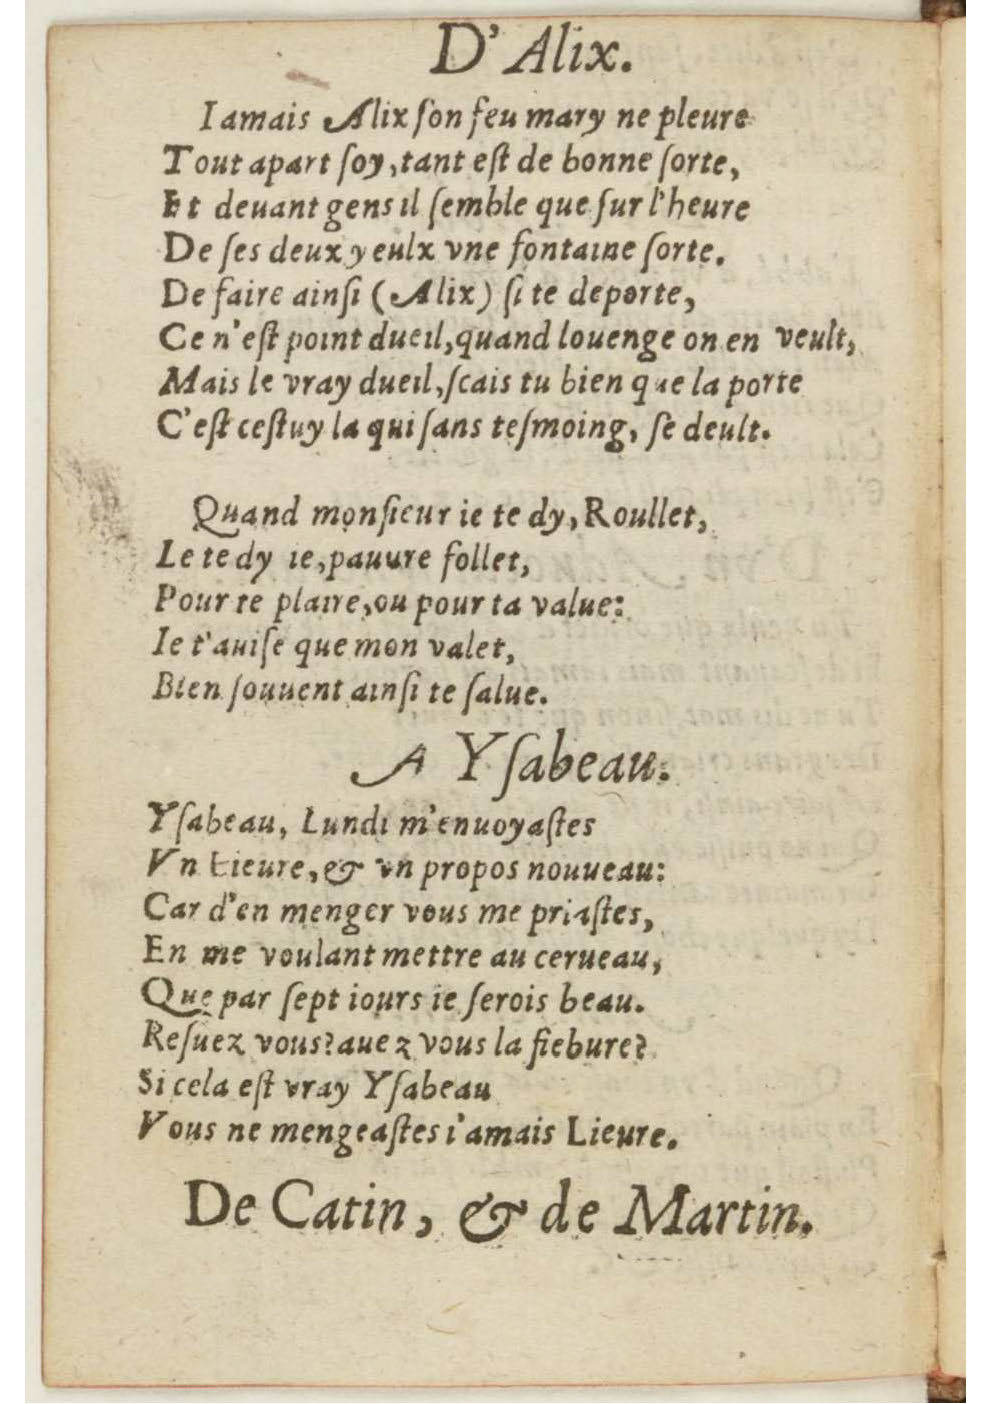 D'Alix.
Iamais Alix ſon feu mary ne pleure
Tout apart ſoy, tant eſt de bonne ſorte,
Et deuant gens il ſemble que ſur l'heure
De ſes deux yeulx vne fontaine ſorte.
De faire ainſi (Alix) ſi te deporte,
Ce n'eſt point dueil, quand louenge on en veult,
Mais le vray dueil, ſcais tu bien que la porte
C'eſt ceſtuy la qui ſans teſmoing, ſe deult.
Quand monſieur ie te dy, Roullet,
Le te dy ie, pauure follet,
Pour te plaire, ou pour ta value:
Ie t'auiſe que mon valet,
Bien ſouuent ainſi te ſalue.
A Yſabeau.
Yſabeau, Lundi m'enuoyaſtes
Vn Lieure, & vn propos nouueau:
Car d'en menger vous me priaſtes,
En me voulant mettre au cerueau,
Que par ſept iours ie ſerois beau.
Reſuez vous? auez vous la fiebure?
Si cela eſt vray Yſabeau
Vous ne mengeaſtes i'amais Lieure.
De Catin, & de Martin.